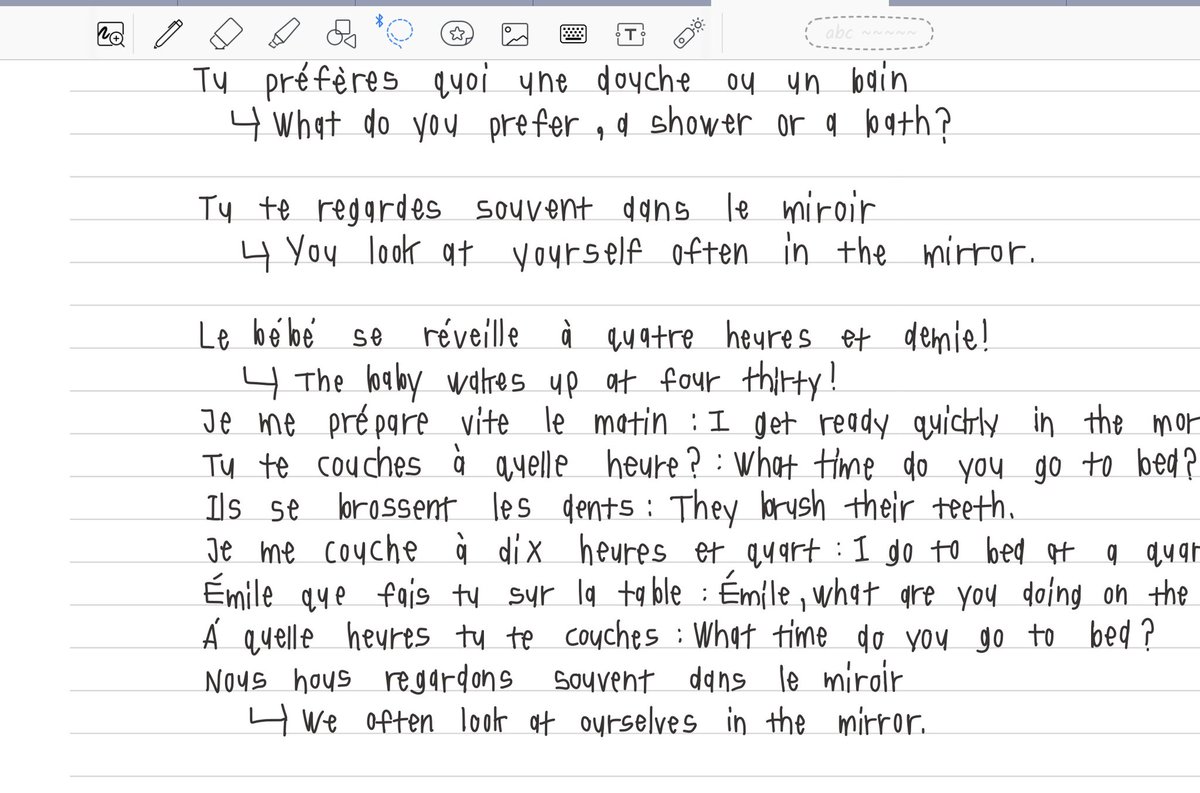 abc
Tu préfères quoi une douche ou un bain
↳ What do you prefer, a shower or a bath?
Tu te regardes souvent dans le miroir
↳ You look at yourself often in the mirror.
Le bébé se réveille à quatre heures et demie!
↳ The baby wakes up at four thirty!
Je me prépare vite le matin : I get ready quickly in the mor
Tu te couches à quelle heure? : What time do you go to bed?
Ils se brossent les dents : They brush their teeth.
Je me couche à dix heures et quart : I go to bed at a quar
Émile que fais tu sur la table : Émile, what are you doing on the
Á quelle heures tu te couches : What time do you go to bed?
Nous nous regardons souvent dans le miroir
↳ We often look at ourselves in the mirror.